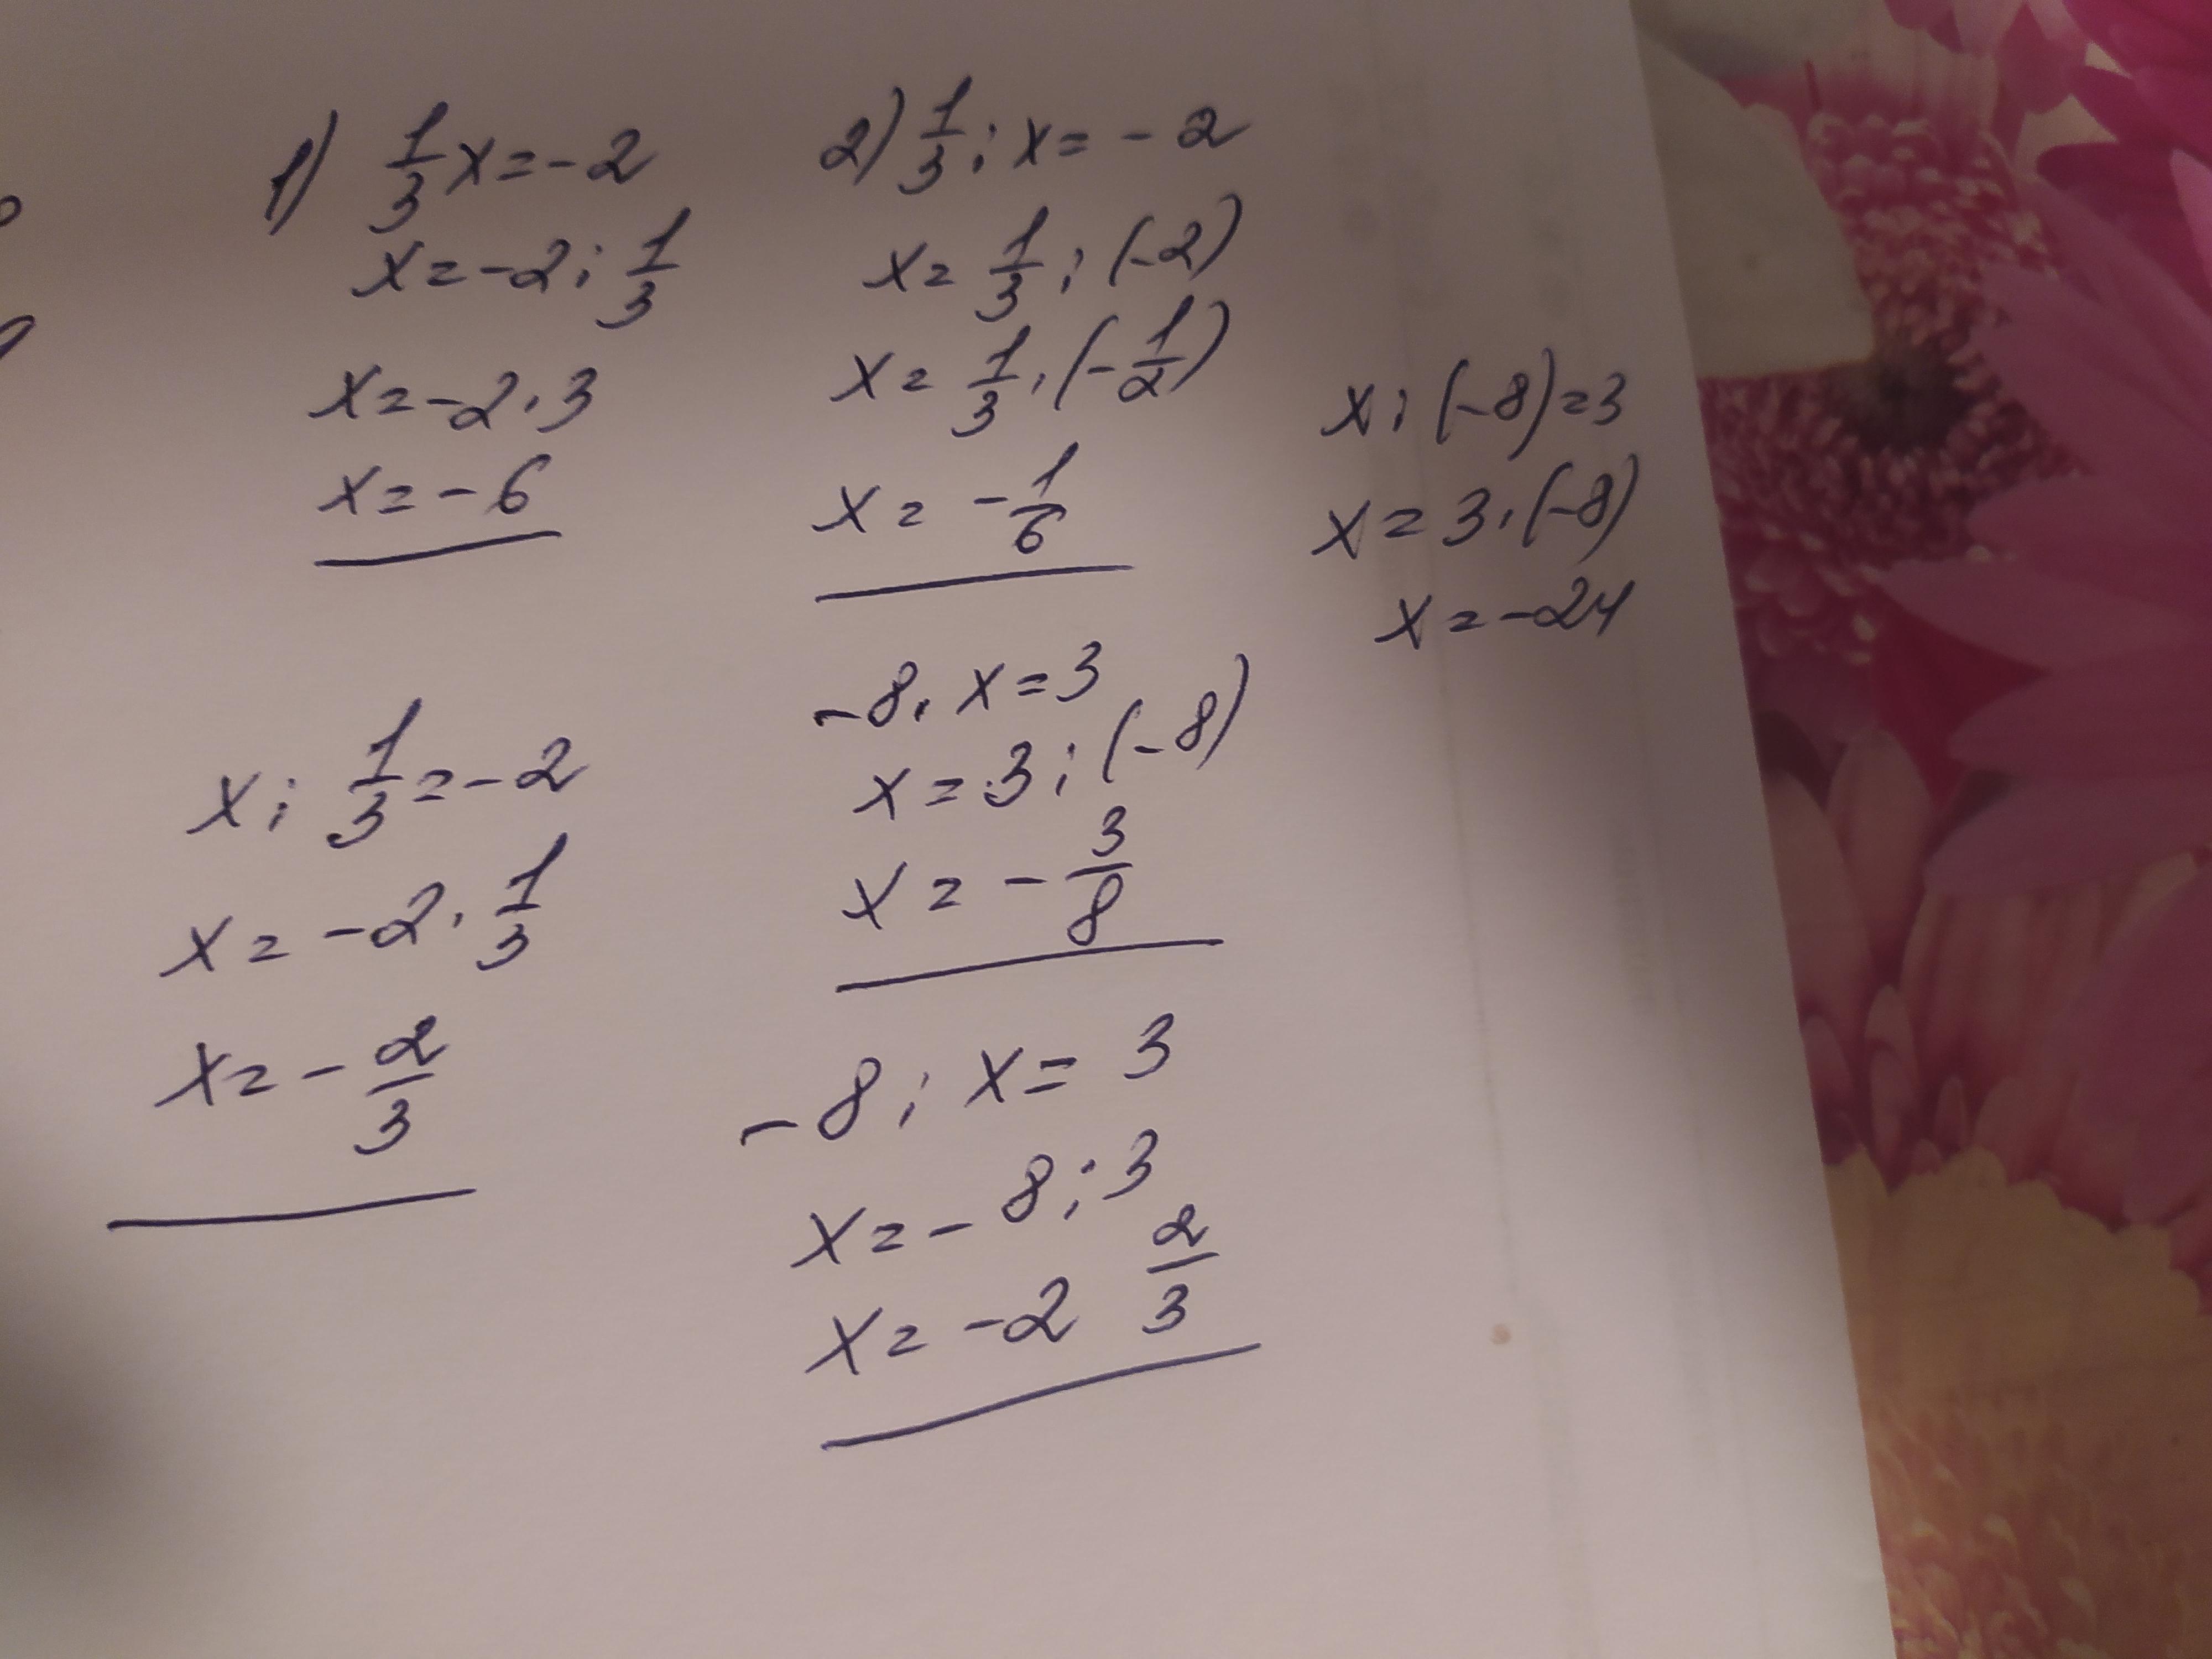 1) 1/3 x = -2
x = -2 : 1/3
x = -2 · 3
x = -6
2) 1/3 : x = -2
x = 1/3 : (-2)
x = 1/3 · (-1/2)
x = -1/6
x : (-8) = 3
x = 3 · (-8)
x = -24
x : 1/3 = -2
x = -2 · 1/3
x = -2/3
-8 · x = 3
x = 3 : (-8)
x = -3/8
-8 : x = 3
x = -8 : 3
x = -2 2/3